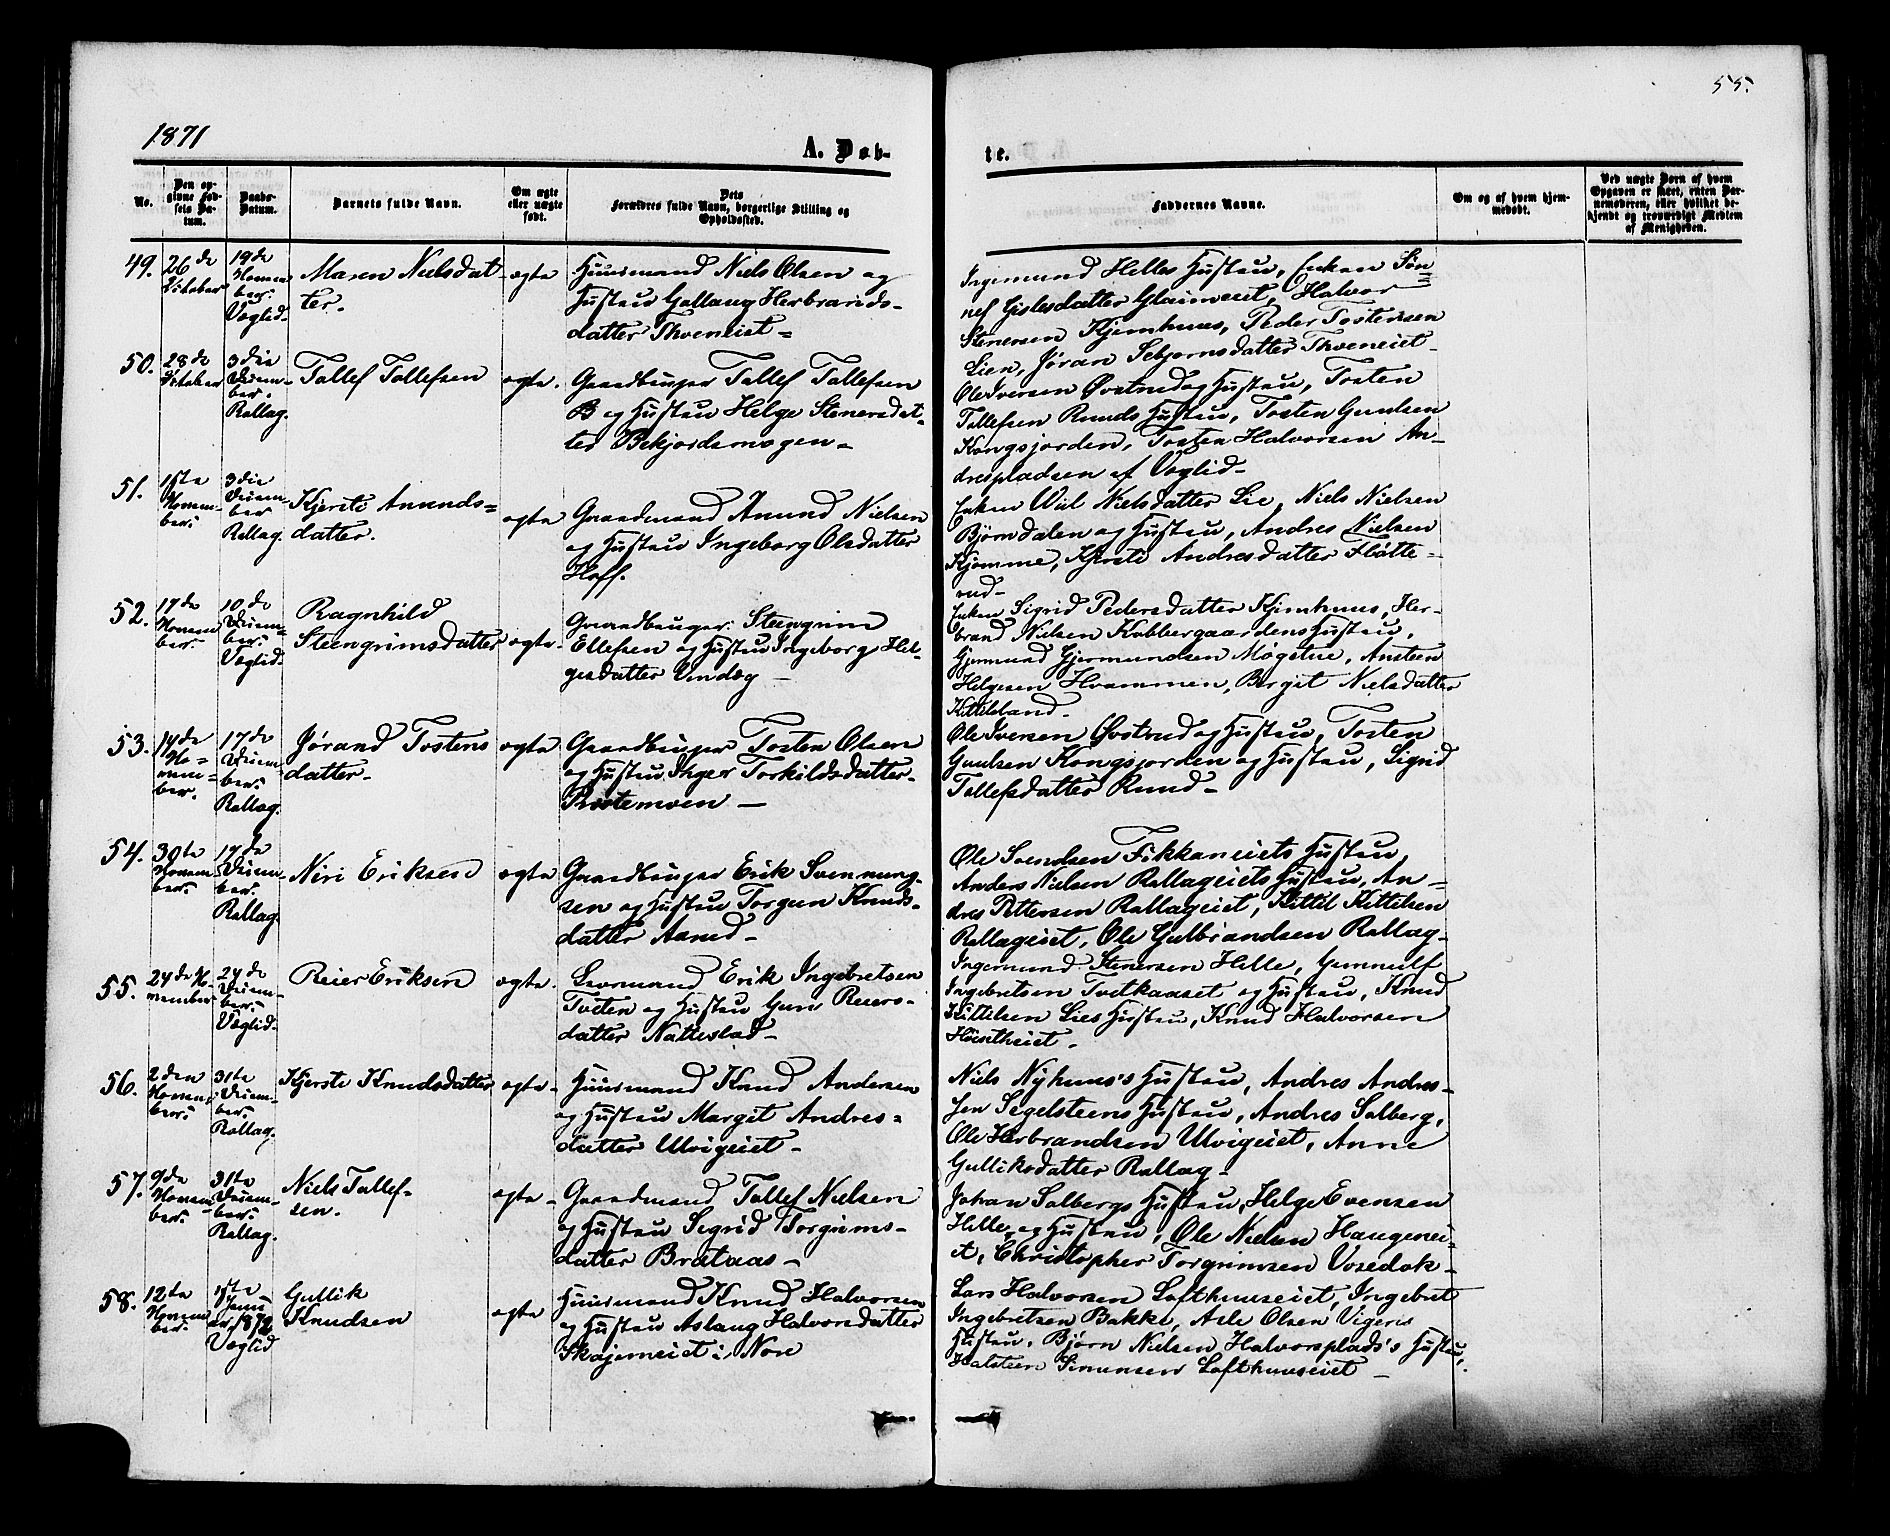 1871
55.
A. Døb-
te.
No.
Den op-
givne Fød-
sels Da-
tum.
Daabs-
Datum.
Barnets fulde Navn.
Om ægte
eller uægte
født.
Dets
Forældres fulde Navn, borgerlige Stilling og
Opholdssted.
Faddernes Navne.
Om og af hvem hjem-
medøbt.
Ved uægte Børn af hvem
Opgaven er skeet, enten Bar-
nemoderen, eller hvilket be-
kjendt og troværdigt Medlem
af Menigheden.
49.
26de
October
19de
Novem-
ber.
Væglid.
Maren Nielsdat-
ter.
ægte
Huusmand Niels Olsen og
Hustru Gollaug Herbrands-
datter Thveneiet
Ingemund Helles Hustru, Enken Søn-
nef Gislesdatter Glaimeiet, Halvor
Stenersen Kjemhuus, Peder Tostensen
Lien, Jøran Sebjørnsdatter Thveneiet
50.
28de
October
3die
Decem-
ber.
Rollag.
Tollef Tollefsen
ægte.
Gaardbruger Tollef Tollefsen
B og Hustru Helge Stenersdat-
ter Bekjordsmogen
Ole Iversen Øvstrud og Hustru, Tosten
Tollefsen Ruuds Hustru, Tosten Guulsen
Kongsjorden, Tosten Halvorsen An-
drespladsen af Væglid
51.
1ste
Novem-
ber.
3die
Decem-
ber
Rollag.
Kjersti Anunds-
datter.
ægte
Gaardmand Anund Nielsen
og Hustru Ingeborg Olsdatter
Hoff.
Enken Wiil Nielsdatter Lie, Niels Nielsen
Bjørndalen og Hustru, Andres Nielsen
Kjømme, Kjersti Andresdatter Flotte-
rud
52.
17de
Novem-
ber.
10de
Decem-
ber.
Væglid
Ragnhild
Steengrimsdatter
ægte
Gaardbruger Steengrim
Ellefsen og Hustru Ingeborg Hel-
gesdatter Vindeg
Enken Sigrid Pedersdatter Kjemhuus, Her-
brand Nielsen Kobbergaardens Hustru,
Gjermund Gjermundsen Møgstue, Ansteen
Helgesen Hvammen, Birgit Nielsdatter
Kittilsland
53.
14de
No-
vem-
ber.
17de
Decem-
ber.
Rollag.
Jørand Tostens-
datter
ægte
Gaardbruger Tosten Olsen
og Hustru Inger Torkildsdatter
Prestemoen
Ole Iversen Øvstrud og Hustru, Tosten
Guulsen Kongsjorden og Hustru, Sigrid
Tollefsdatter Ruud
54.
30te
Novem-
ber.
17de
Decem-
ber.
Rollag.
Niri Eriksen
ægte
Gaardbruger Erik Svennung-
sen og Hustru Torgun Knuds-
datter Aasud
Ole Svendsen Fikkaneiets Hustru,
Anders Nielsen Rollageiets Hustru, An-
dres Pettersen Rollageiet, Kittil Kittilsen
Rollageiet, Ole Gulbrandsen Rollag
55.
24de No-
vember
24de
Decem-
ber.
Væglid
Reier Eriksen
ægte.
Leermand Erik Ingebretsen
Tveten og Hustru Guri Reiers-
datter Nattestad
Ingemund Stenersen Helle, Gunnulf
Ingebretsen Tvetkaaset og Hustru, Knud
Kittilsen Lies Hustru, Knud Halvorsen
56.
2den
Novem-
ber.
31te
Decem-
ber.
Rollag.
Kjersti Knudsdatter
ægte
Huusmand Knud Andersen
og Hustru Margit Andres-
datter Ulvigeiet
Niels Nyhuus's Hustru, Andres Andres-
sen Segelsteens Hustru, Andres Solberg,
Ole Herbrandsen Ulvigeiet, Anne
Gulliksdatter Rollag
57.
9de
Novem-
ber.
31te
Decem-
ber.
Rollag.
Niels Tollef-
sen.
ægte
Gaardmand Tollef Nielsen
og Hustru Sigrid Torgrims-
datter Brataas
Johan Solbergs Hustru, Helge Evensen
Helle og Hustru, Ole Nielsen Haugenei-
et, Christopher Torgrimsen Vosedok
58.
12te
Novem-
ber.
1ste
Janu-
ar 1872
Væglid
Gullik
Knudsen
ægte
Huusmand Knud Halvorsen
og Hustru Aslaug Halvorsdatter
Skajemeiet i Nore
Lars Halvorsen Lofthuuseiet, Ingebret
Ingebretsen Bakke, Asle Olsen Vigeris
Hustru, Bjørn Nielsen Halvorsplads's Hustru,
Halsteen Simensen Lofthuuseiet